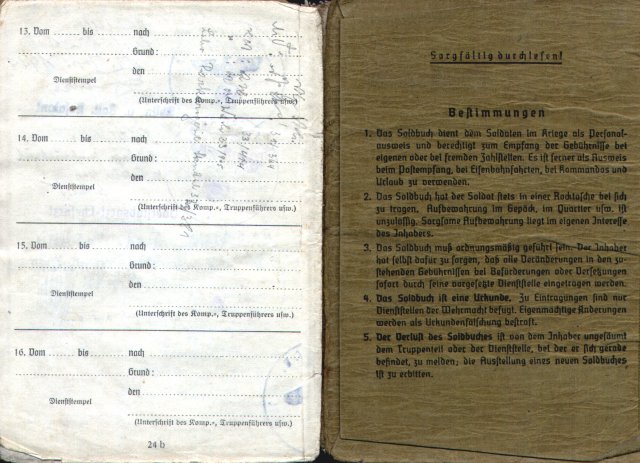 13. Vom ........ bis ........ nach
Grund:
den
Dienststempel
(Unterschrift des Komp.-, Truppenführers usw.)
14. Vom ........ bis ........ nach
Grund:
den
Dienststempel
(Unterschrift des Komp.-, Truppenführers usw.)
15. Vom ........ bis ........ nach
Grund:
den
Dienststempel
(Unterschrift des Komp.-, Truppenführers usw.)
16. Vom ........ bis ........ nach
Grund:
den
Dienststempel
(Unterschrift des Komp.-, Truppenführers usw.)
24 b
Sorgfältig durchlesen!
Bestimmungen
1. Das Soldbuch dient dem Soldaten im Kriege als Personal-
ausweis und berechtigt zum Empfang der Gebührnisse bei
eigenen oder bei fremden Zahlstellen. Es ist ferner als Ausweis
beim Postempfang, bei Eisenbahnfahrten, bei Kommandos und
Urlaub zu verwenden.
2. Das Soldbuch hat der Soldat stets in einer Rocktasche bei sich
zu tragen. Aufbewahrung im Gepäck, im Quartier usw. ist
unzulässig. Sorgsame Aufbewahrung liegt im eigenen Interesse
des Inhabers.
3. Das Soldbuch muß ordnungsmäßig geführt sein. Der Inhaber
hat selbst dafür zu sorgen, daß alle Veränderungen in den zu-
stehenden Gebührnissen bei Beförderungen oder Versetzungen
sofort durch seine vorgesetzte Dienststelle eingetragen werden.
4. Das Soldbuch ist eine Urkunde. Zu Eintragungen sind nur
Dienststellen der Wehrmacht befugt. Eigenmächtige Änderungen
werden als Urkundenfälschung bestraft.
5. Der Verlust des Soldbuches ist von dem Inhaber ungesäumt
dem Truppenteil oder der Dienststelle, bei der er sich gerade
befindet, zu melden; die Ausstellung eines neuen Soldbuches
ist zu erbitten.